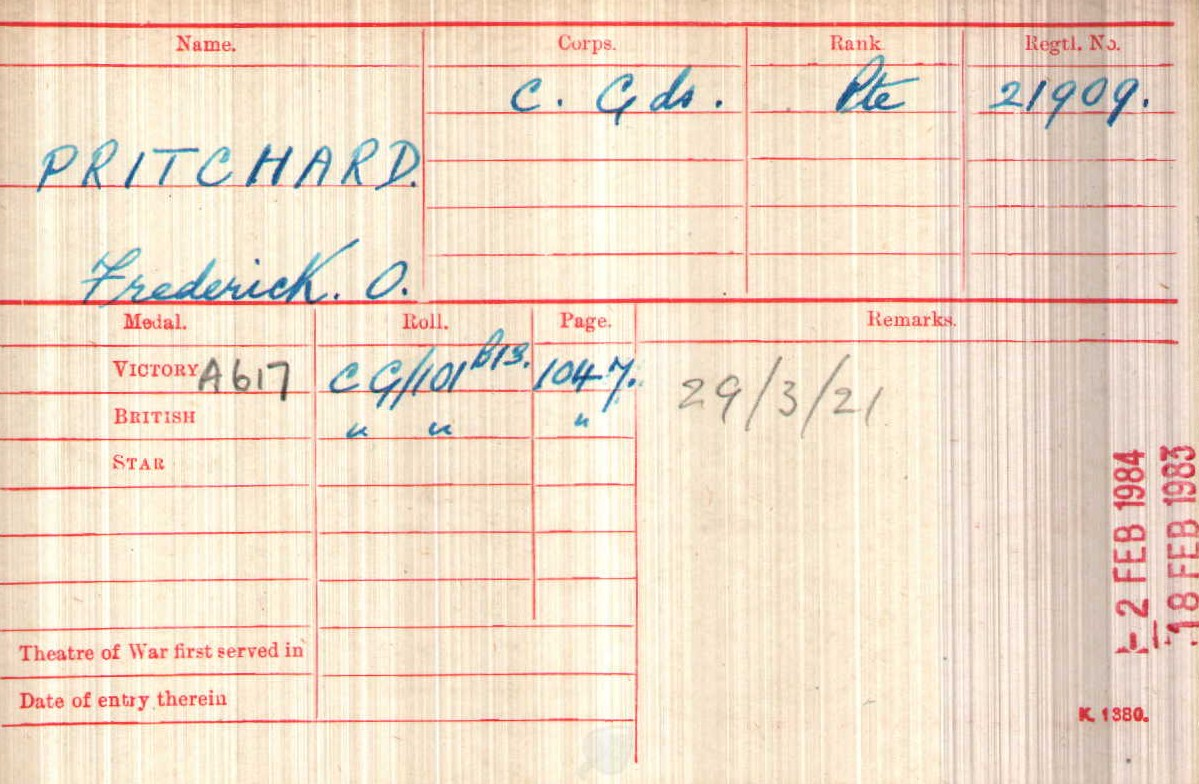 Name. Corps. Rank Regtl. No.
C. Gds. Pte 21909.
PRITCHARD.
Frederick. O.
Medal. Roll. Page. Remarks.
VICTORY A617 CG/101 B13. 1047. 29/3/21
BRITISH " " "
STAR
Theatre of War first served in
Date of entry therein
K. 1380.
- 2 FEB 1984
18 FEB 1983